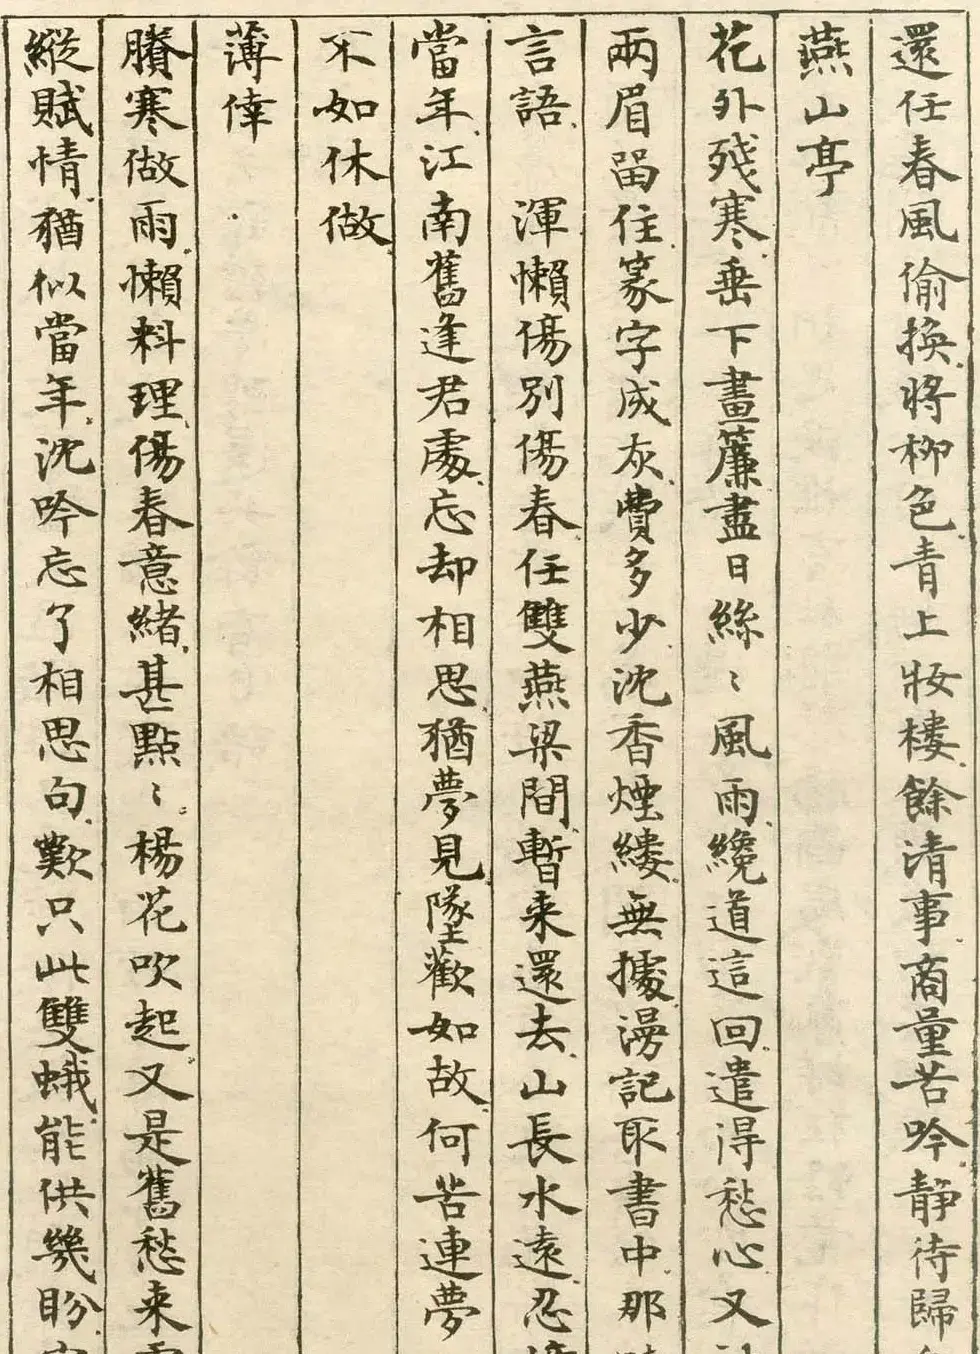 還任春風偷換將柳色青上妝樓餘清事商量苦吟靜待歸
燕山亭
花外殘寒垂下畫簾盡日絲〻風雨纔道這回遣得愁心又
兩眉留住篆字成灰費多少沈香煙縷無據漫記取書中那
言語 渾懶傷別傷春任雙燕梁間暫来還去山長水遠忍
當年江南舊逢君處忘却相思猶夢見墜歡如故何苦連夢
不如休做
薄倖
賸寒做雨懶料理傷春意緒甚點〻楊花吹起又是舊愁来
縱賦情猶似當年沈吟忘了相思句歎只此雙蛾能供幾盼